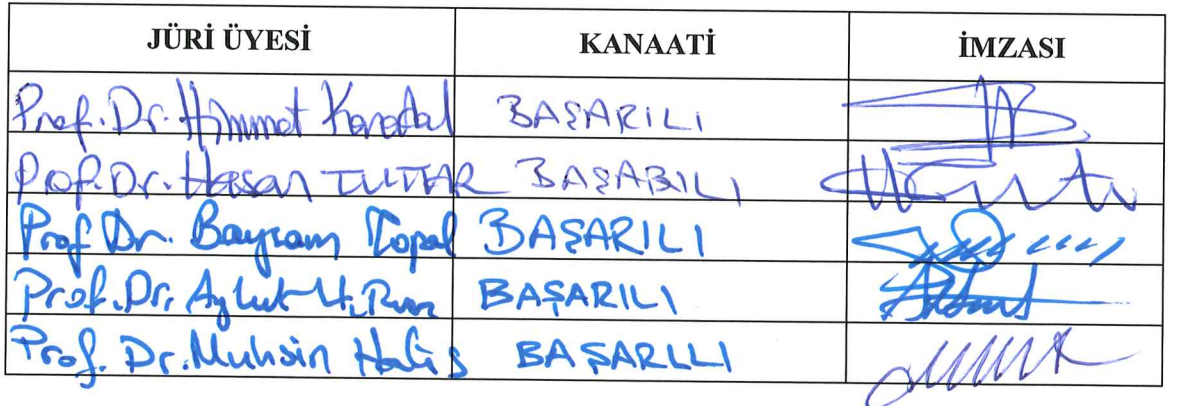 JÜRİ ÜYESİ KANAATİ İMZASI
Prof. Dr. Himmet Karadal BAŞARILI
Prof. Dr. Hasan TUTAR BAŞARILI
Prof Dr. Bayram Topal BAŞARILI
Prof. Dr. BAŞARILI
Prof. Dr. Muhsin Halis BAŞARILI